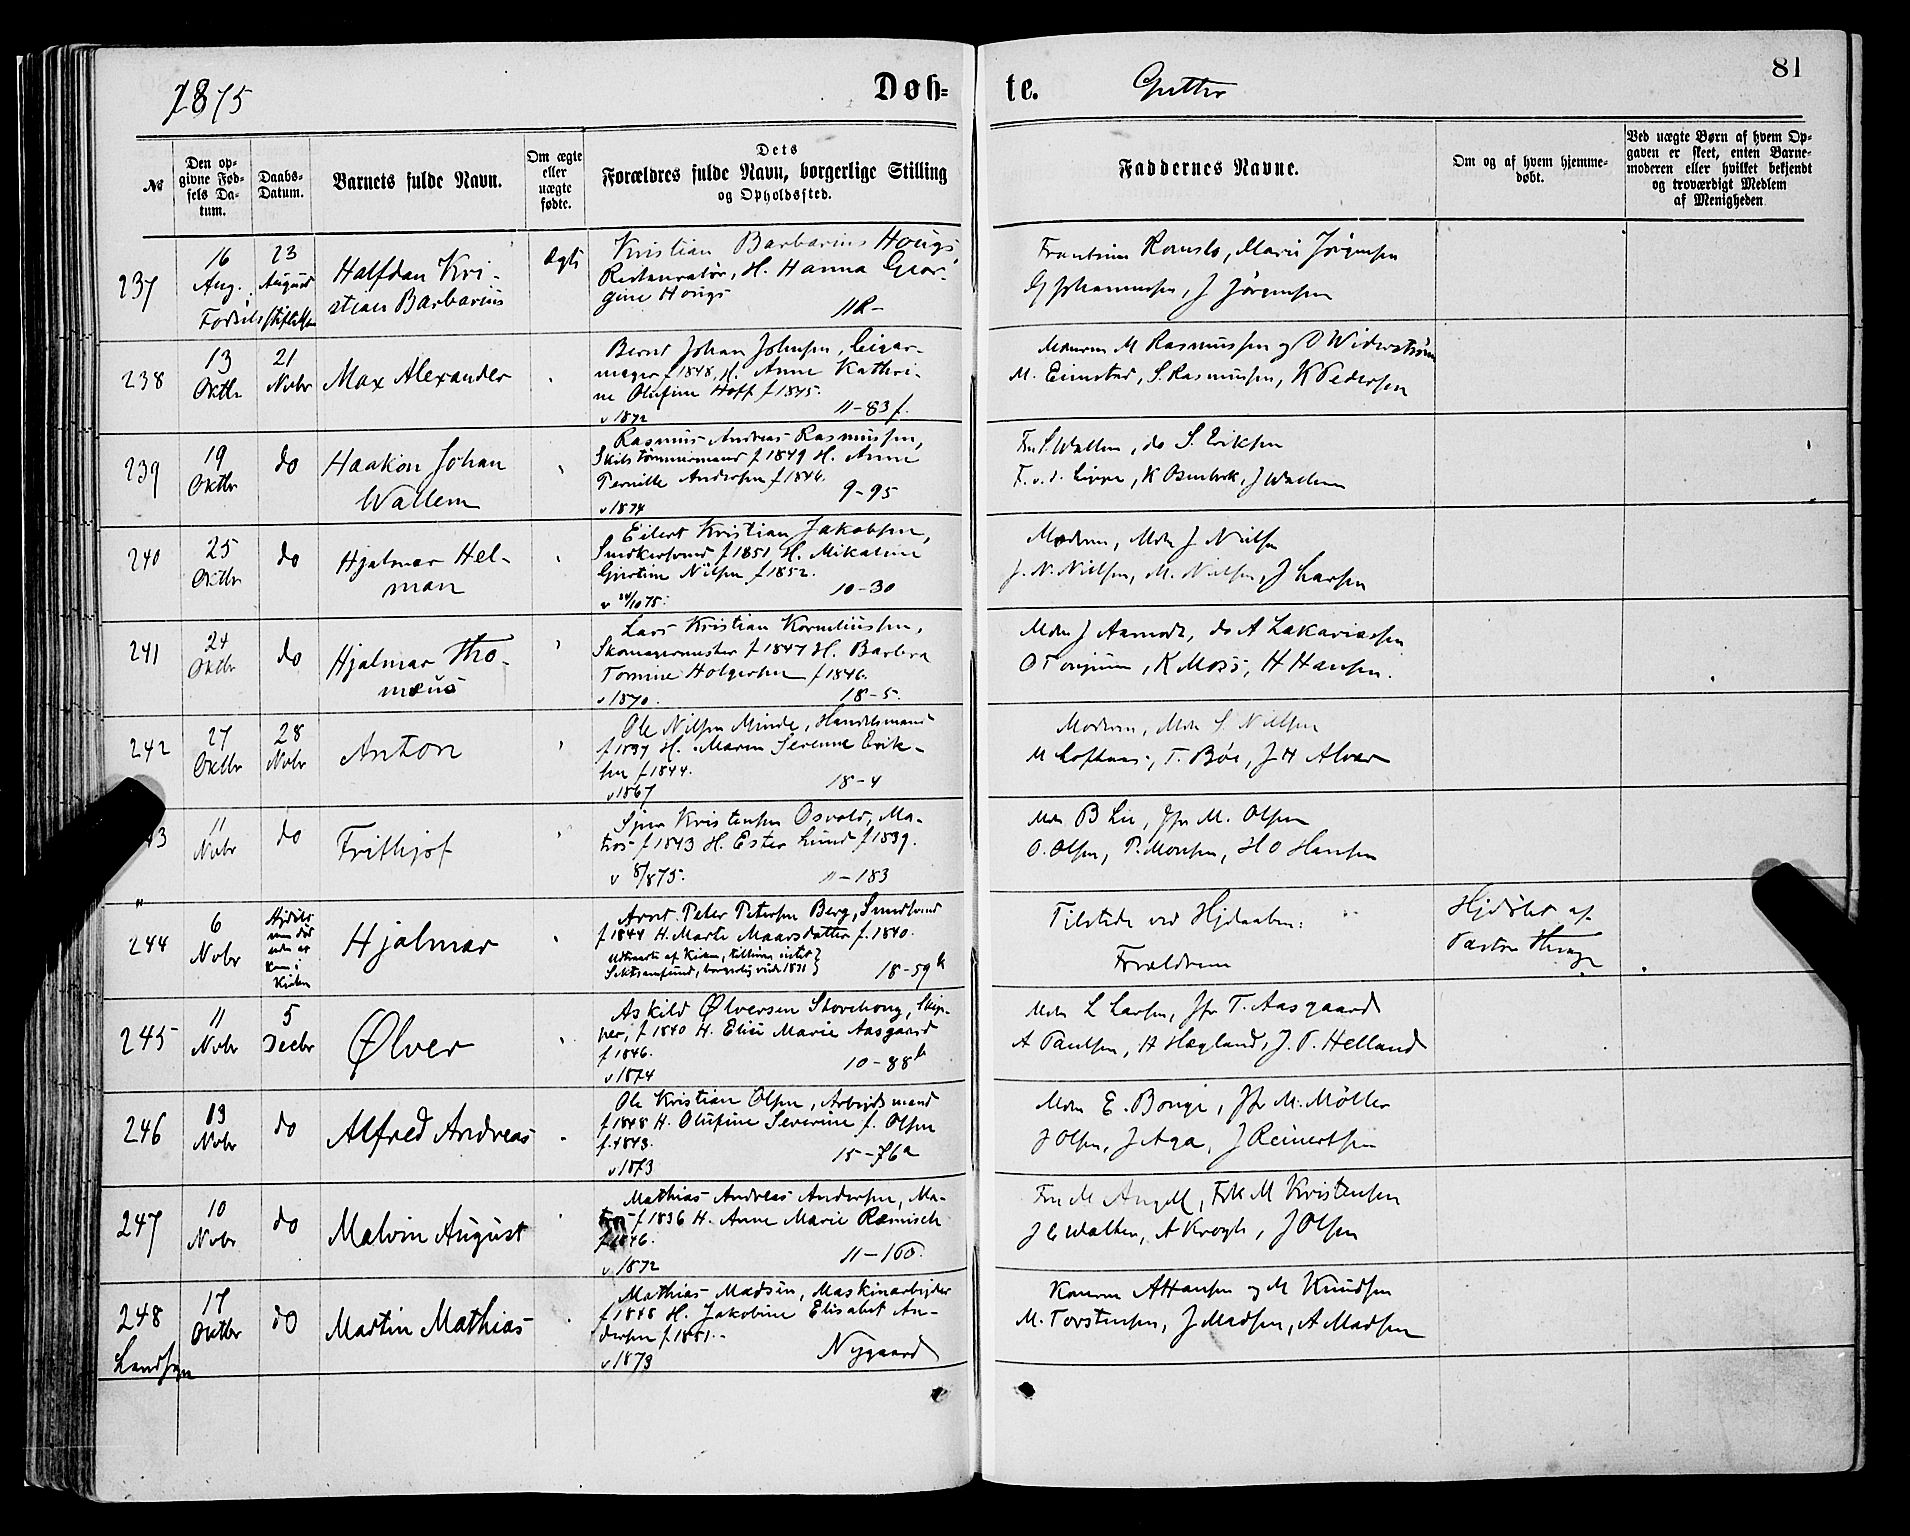 1875
Døb=
te.
Gutter
81
No
Den op-
givne Fød-
sels Da-
tum.
Daabs-
Datum.
Barnets fulde Navn.
Om ægte
eller
uægte
fødte.
Dets
Forældres fulde Navn, borgerlige Stilling
og Opholdssted.
Faddernes Navne.
Om og af hvem hjemme-
døbt.
Ved uægte Børn af hvem Op-
gaven er skeet, enten Barne-
moderen eller hvilket bekjendt
og troværdigt Medlem
af Menigheden
237
16
Aug.
23
August
Halfdan Kri-
stian Barbarius
Ægte
Kristian Barbarius Hougs
Restauratør, H. Hanna Geor-
gine Hougs
11R-
Marie Jørgensen
G Johannessen, J Jørgensen
238
13
Oktbr
21
Novbr
Max Alexander
Bernt Johan Johnsen, Cigar-
mager f 1848, H. Anne Kathri-
ne Olufine Hoff f 1845.
v 1872
11-83 f.
M Rasmussen og O Widerstrøm
M. Eimstad, S. Rasmussen, K Pedersen
239
19
Oktbr
do
Haakon Johan
Wallem
Rasmus Andreas Rasmussen,
Skibstømmermand f 1849 H. Anne
Pernille Andersen f 1846.
v 1874
9-95
Fru S. Wallem, do S. Eriksen
J Wallem
240
25
Oktbr
do
Hjalmar Hel-
man
Eilert Kristian Jakobsen,
Snedkersvend f 1851 H. Mikaline
Gjertine Nilsen f 1852.
v 24/10 75.
10-30
Moderen, Mdm J Nielsen
J. N. Nielsen, M. Nielsen, J Larsen
241
24
Oktbr
do
Hjalmar Tho-
mæus
Lars Kristian Korneliussen,
Skomagermester f 1847 H. Barbra
Tomine Holgersen f 1846.
v 1870.
18-5.
Mdm J Aamodt, do A Zakariassen
O Tonjum, K Moss, H Hansen.
242
27
Oktbr
28
Novbr
Anton
Ole Nilsen Minde, Handelsmand
f 1837 H. Maren Serenne Erik-
sen f 1844.
v 1867
18-4
Moderen, Mdm S. Nielsen
M Lofthus, T. Bøe, J H Alver
3
11
Novbr
do
Frithjof
Sjur Kristensen Osvold, Ma-
tros f 1843 H. Ester Lund f 1839.
v 8/8 75.
11-183
Mdm B Lie, Jfr M. Olsen
O. Olsen, P. Monsen, H O Hansen
"
244
6
Novbr
Kirken
Hjalmar
Arnt Peter Petersen Berg, Smedsvend
f 1844 H. Marte Maarsdatter f. 1840.
Udtraadte af Kirken, tilhører intet
Sektsamfund, borgerlig viede 1871
18-59 b
Tilstede ved Hjdaaben:
Forældrene
Hjdøbt af
Pastor
245
11
Novbr
5
Decbr
Ølver
Askild Ølversen Storehoug, Skip-
per, f 1840 H. Elise Marie Aasgaard
f 1846.
v 1874
10-88 b
Mdm L Larsen, Jfr T. Aasgaard
A Paulsen, H Hægland, J. T. Helland
246
13
Novbr
do
Alfred Andreas
Ole Kristian Olsen, Arbejdsmand
f 1848 H. Olufine Severine f. Olsen
f. 1843.
v 1873
15-76 a
Mdm E. Bonge, Jfr M. Møller
J Olsen, J Aga, J Reinertsen
247
10
Novbr
do
Malvin August
Mathias Andreas Andersen, Ma-
tros f 1836 H. Anne Marie Ræmisch
f 1846.
v 1872
11-160.
Fru M Angell, Frk M Kristensen
J C Walther, A Krogh, J Olsen
248
Landsogn
17
Oktbr
do
Martin Mathias
Mathias Madsen, Maskinarbejder
f 1848 H. Jakobine Elisabet An-
dersen f 1851.
v 1873
Nygaard
Konerne A Hansen og M Knudsen
M. Torstensen, J Madsen, A Madsen